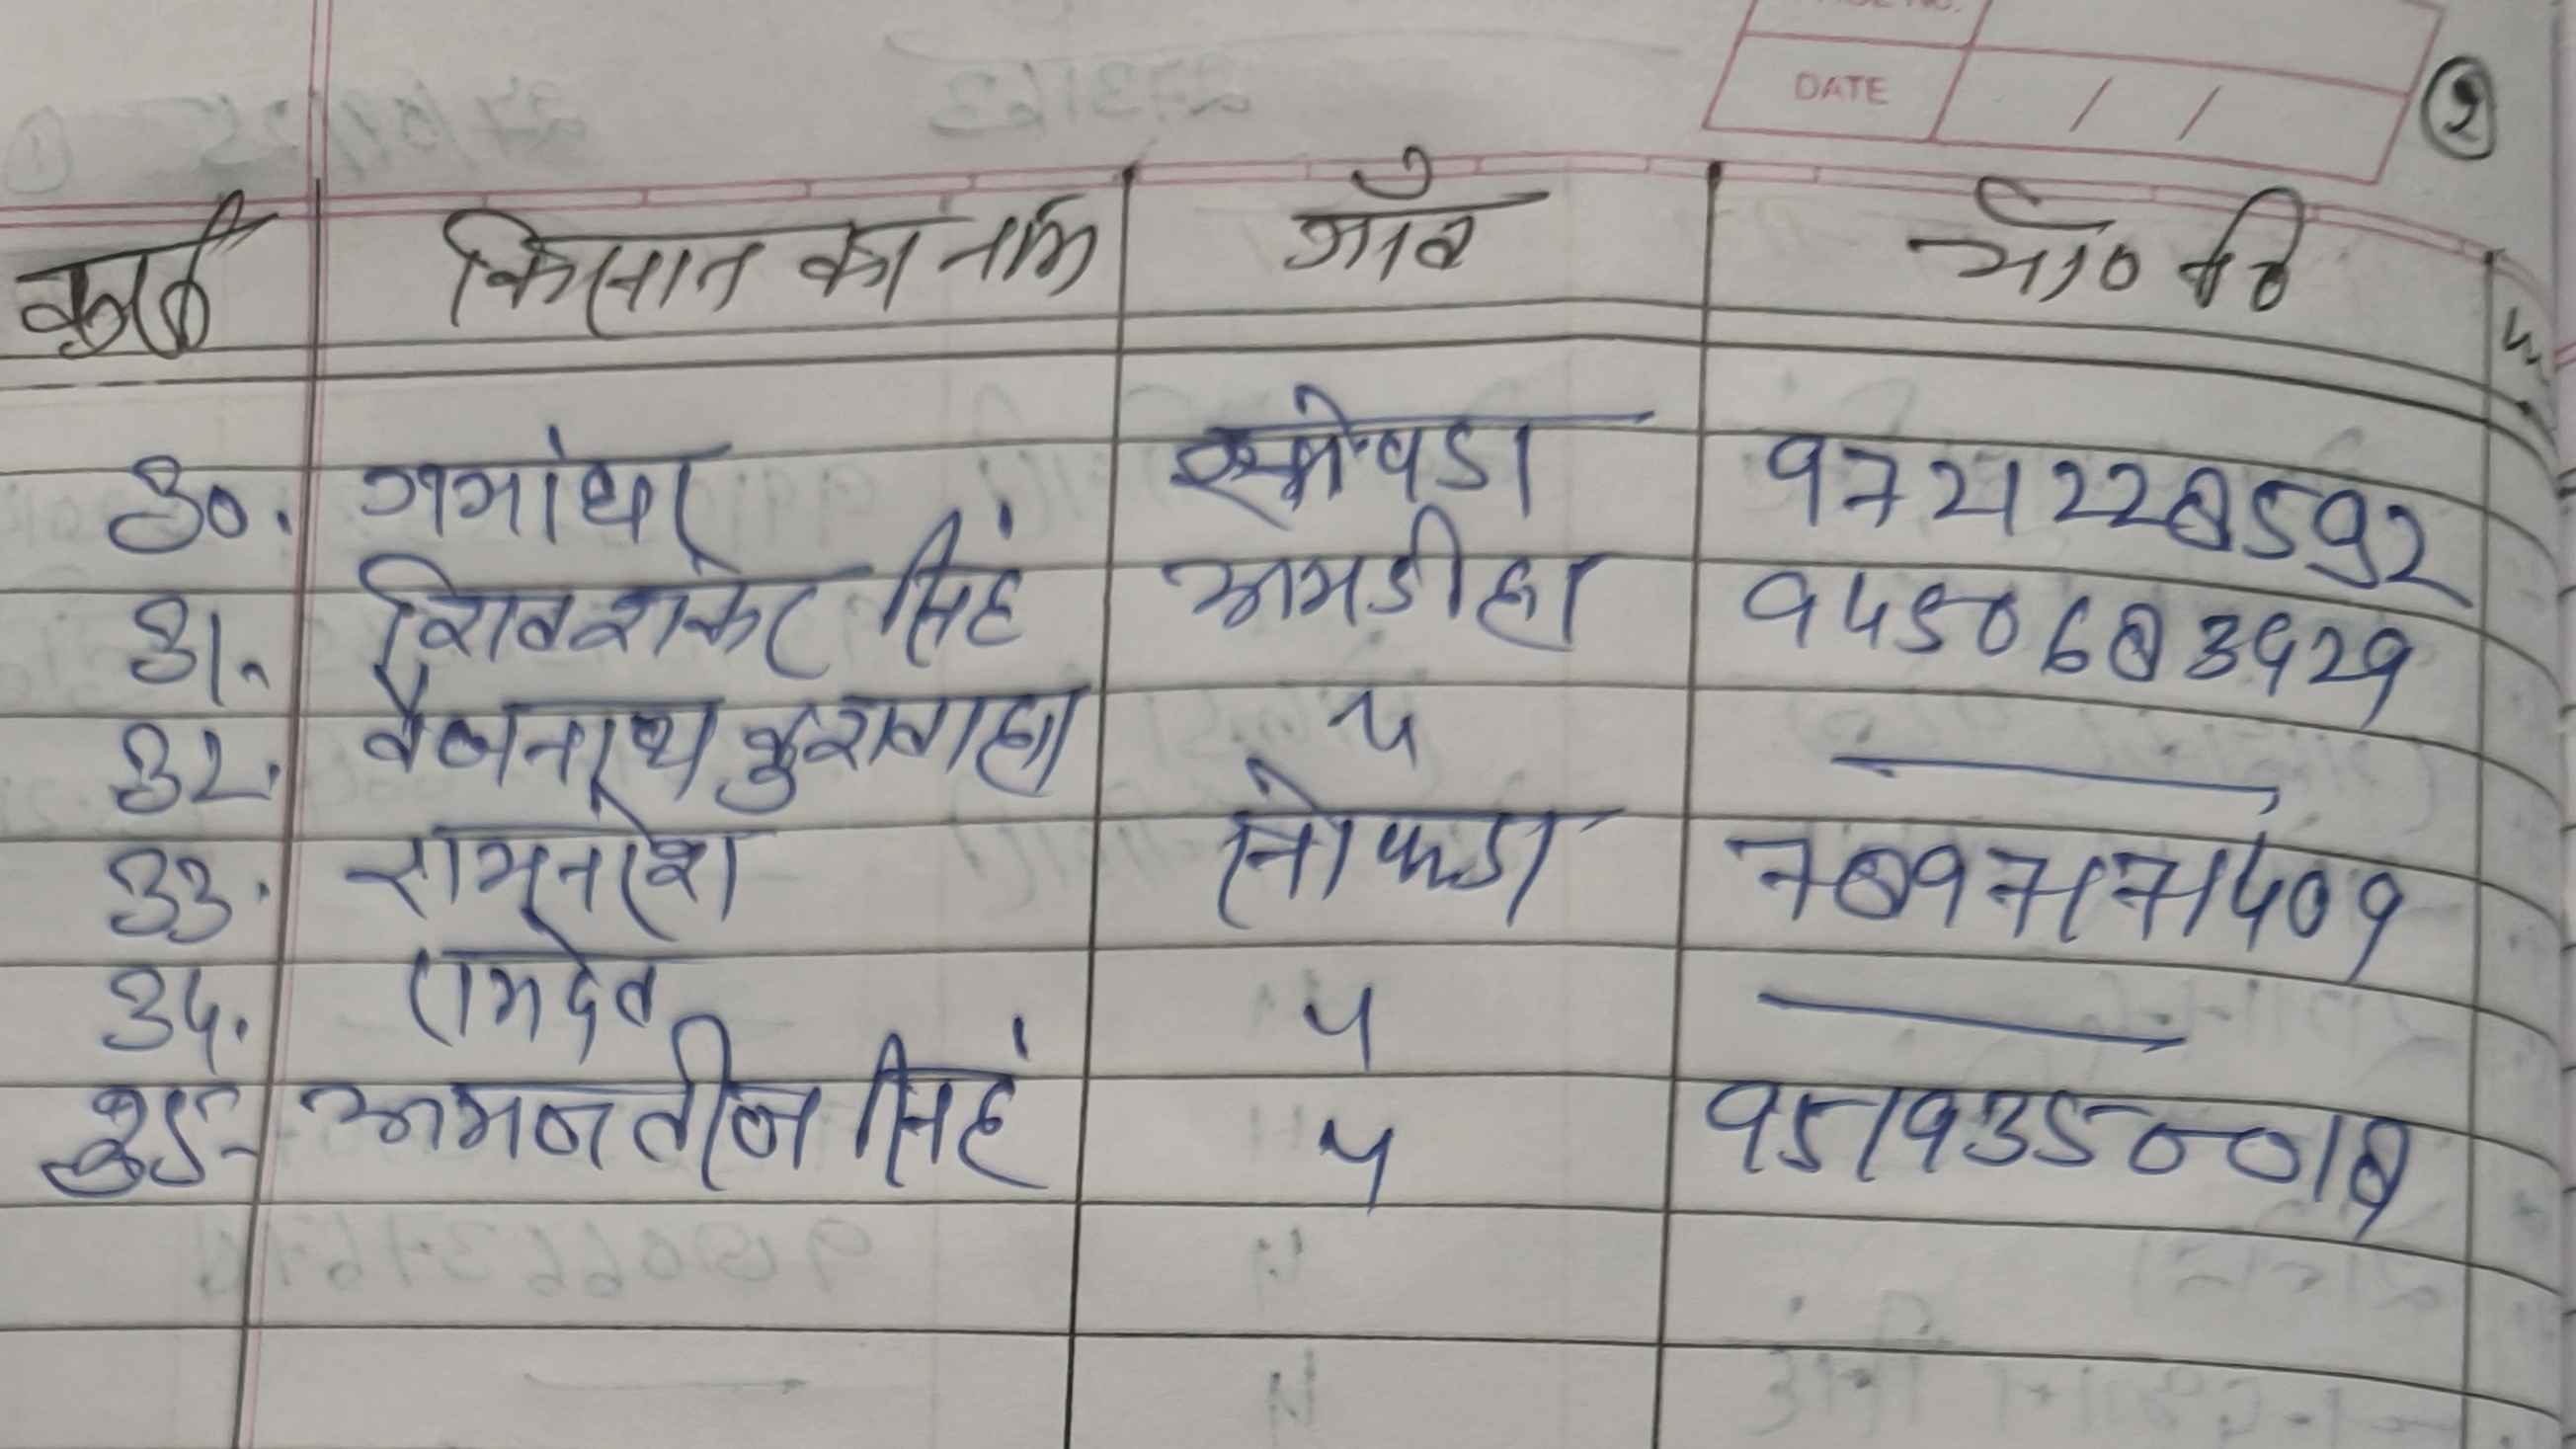 DATE / / 2
क्र०सं० किसान का नाम गाँव मो० नं०
30. गमांधर 9721228592
31. शिवशंकर सिंह अमडीहा 9450683929
32. वैजनाथ कुशवाहा 〃 —
33. रामनरेश 7897171409
34. रामदेव 〃 —
35- अमनजीत सिंह 〃 9519350018